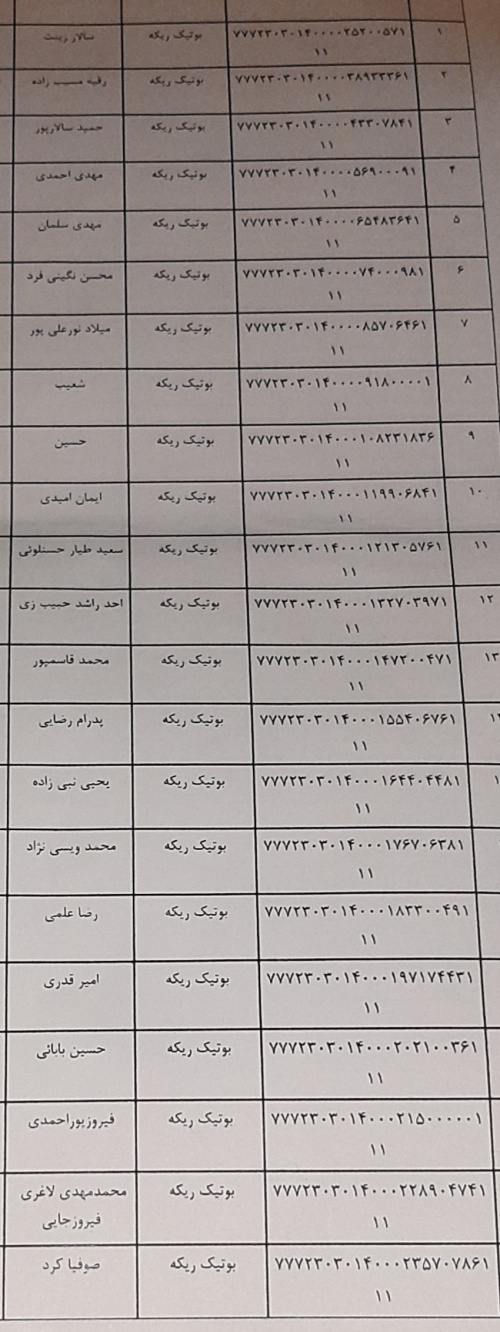 ۱ ۷۷۷۲۳۰۳۰۱۴۰۰۰۰۲۵۲۰۰۵۷۱ بوتیک ریکه سالار زینت
۱۱
۲ ۷۷۷۲۳۰۳۰۱۴۰۰۰۰۳۸۹۳۳۳۶۱ بوتیک ریکه رقیه مسیب زاده
۱۱
۳ ۷۷۷۲۳۰۳۰۱۴۰۰۰۰۴۳۳۰۷۸۴۱ بوتیک ریکه حمید سالارپور
۱۱
۴ ۷۷۷۲۳۰۳۰۱۴۰۰۰۰۵۶۹۰۰۰۹۱ بوتیک ریکه مهدی احمدی
۱۱
۵ ۷۷۷۲۳۰۳۰۱۴۰۰۰۰۶۵۴۸۳۶۴۱ بوتیک ریکه مهدی سلمان
۱۱
۶ ۷۷۷۲۳۰۳۰۱۴۰۰۰۰۷۴۰۰۰۹۸۱ بوتیک ریکه محسن نگینی فرد
۱۱
۷ ۷۷۷۲۳۰۳۰۱۴۰۰۰۰۸۵۷۰۶۴۶۱ بوتیک ریکه میلاد نورعلی پور
۱۱
۸ ۷۷۷۲۳۰۳۰۱۴۰۰۰۰۹۱۸۰۰۰۰۱ بوتیک ریکه شعیب
۱۱
۹ ۷۷۷۲۳۰۳۰۱۴۰۰۰۱۰۸۲۳۱۸۳۶ بوتیک ریکه حسین
۱۱
۱۰ ۷۷۷۲۳۰۳۰۱۴۰۰۰۱۱۹۹۰۶۸۴۱ بوتیک ریکه ایمان امیدی
۱۱
۱۱ ۷۷۷۲۳۰۳۰۱۴۰۰۰۱۲۱۳۰۵۷۶۱ بوتیک ریکه سعید طیار حسنلوئی
۱۱
۱۲ ۷۷۷۲۳۰۳۰۱۴۰۰۰۱۳۲۷۰۳۹۷۱ بوتیک ریکه احد راشد حبیب زی
۱۱
۱۳ ۷۷۷۲۳۰۳۰۱۴۰۰۰۱۴۷۲۰۰۴۷۱ بوتیک ریکه محمد قاسمپور
۱۱
۷۷۷۲۳۰۳۰۱۴۰۰۰۱۵۵۴۰۶۷۶۱ بوتیک ریکه پدرام رضایی
۱۱
۷۷۷۲۳۰۳۰۱۴۰۰۰۱۶۴۴۰۴۴۸۱ بوتیک ریکه یحیی نبی زاده
۱۱
۷۷۷۲۳۰۳۰۱۴۰۰۰۱۷۶۷۰۶۳۸۱ بوتیک ریکه محمد ویسی نژاد
۱۱
۷۷۷۲۳۰۳۰۱۴۰۰۰۱۸۳۳۰۰۴۹۱ بوتیک ریکه رضا علمی
۱۱
۷۷۷۲۳۰۳۰۱۴۰۰۰۱۹۷۱۷۴۴۳۱ بوتیک ریکه امیر قدری
۱۱
۷۷۷۲۳۰۳۰۱۴۰۰۰۲۰۲۱۰۰۳۶۱ بوتیک ریکه حسین بابائی
۱۱
۷۷۷۲۳۰۳۰۱۴۰۰۰۲۱۵۰۰۰۰۰۱ بوتیک ریکه فیروزپوراحمدی
۱۱
۷۷۷۲۳۰۳۰۱۴۰۰۰۲۲۸۹۰۴۷۴۱ بوتیک ریکه محمدمهدی لاغری
۱۱ فیروزجایی
۷۷۷۲۳۰۳۰۱۴۰۰۰۲۳۵۷۰۷۸۶۱ بوتیک ریکه صوفیا کرد
۱۱